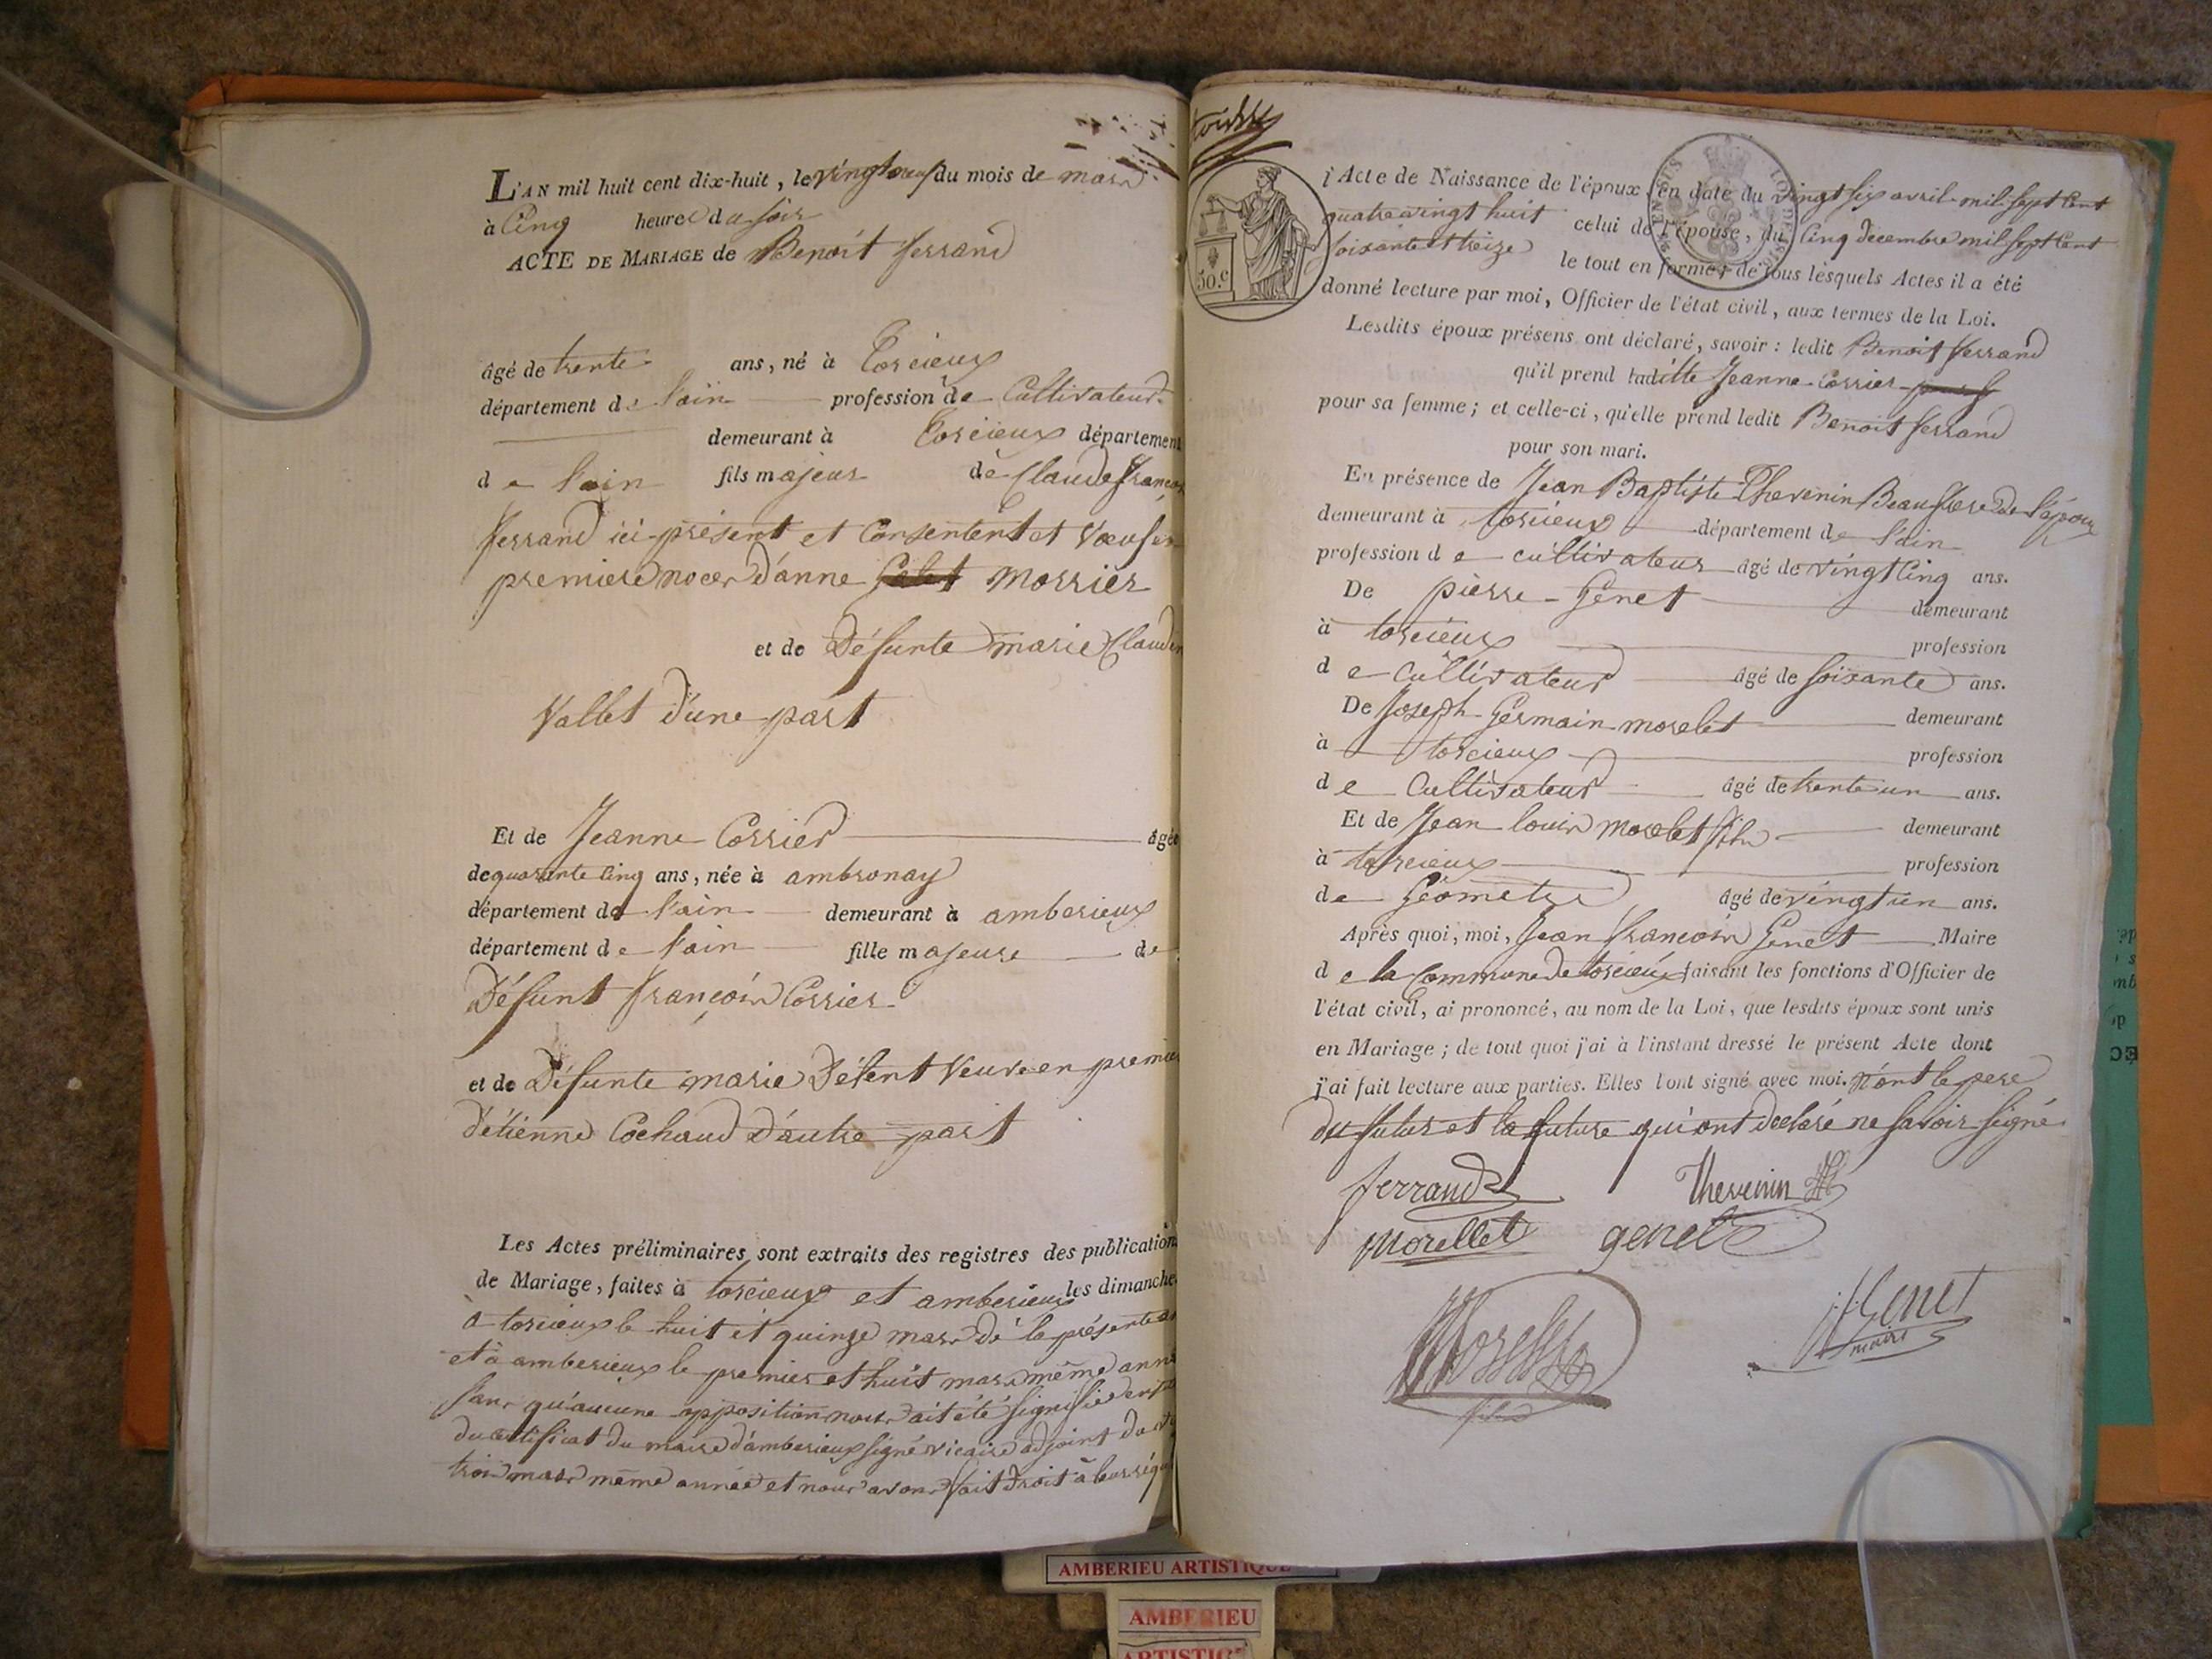 L'AN mil huit cent dix-huit, le vingt neuf du mois de mars
à Cinq heures du soir
ACTE DE MARIAGE de Benoit ferrand
âgé de trente ans, né à torcieux
département de l'ain profession de Cultivateur
demeurant à torcieux département
de l'ain fils majeur de Claude françois
ferrand ici présent et Consentent et Voeuf en
premiere noces d'anne morrier
et de Défunte marie Claudin
Vallet d'une part
Et de Jeanne Corrier âgée
de quarante Cinq ans, née à ambronay
département de l'ain demeurant à amberieux
département de l'ain fille majeure de
Défunt françois Corrier
et de Défunte marie Détent Veuve en premier
d'étienne Cochaud d'autre part
Les Actes préliminaires sont extraits des registres des publication
de Mariage, faites à torcieux et amberieux les dimanche
a torcieux le huit et quinze mars de la présente
et à amberieux le premier et huit mars même anné
sans qu'aucune opposition nous ait été signifiée
du certificat du maire d'amberieux signé vicaire adjoint du
trois mars même année et nous avons fait droit à leur réqui
50.c
l'Acte de Naissance de l'époux en date du vingt six avril mil sept Cent
quatre vingt huit celui de l'épouse, du Cinq decembre mil sept Cent
soixante et treize le tout en forme; de tous lesquels Actes il a été
donné lecture par moi, Officier de l'état civil, aux termes de la Loi.
Lesdits époux présens ont déclaré, savoir : ledit Benoit ferrand
qu'il prend laditte Jeanne Corrier
pour sa femme; et celle-ci, qu'elle prend ledit Benoit ferrand
pour son mari.
En présence de Jean Baptiste Thevenin Beau frere de l'époux
demeurant à torcieux département de l'ain
profession de cultivateur âgé de vingt Cinq ans.
De pierre Genet demeurant
à torcieux profession
de Cultivateur âgé de soixante ans.
De Joseph Germain morelet demeurant
à torcieux profession
de Cultivateur âgé de trente un ans.
Et de Jean louis morelet fils demeurant
à torcieux profession
de Géometre âgé de vingt un ans.
Après quoi, moi, Jean françois Genet Maire
de la Commune de torcieux faisant les fonctions d'Officier de
l'état civil, ai prononcé, au nom de la Loi, que lesdits époux sont unis
en Mariage; de tout quoi j'ai à l'instant dressé le présent Acte dont
j'ai fait lecture aux parties. Elles l'ont signé avec moi. n'ont le pere
du futur et la future qui ont declaré ne savoir signé
ferrand Thevenin
morellet genet
Morellet JfGenet
fils maire
AMBERIEU ARTISTIQUE
AMBERIEU